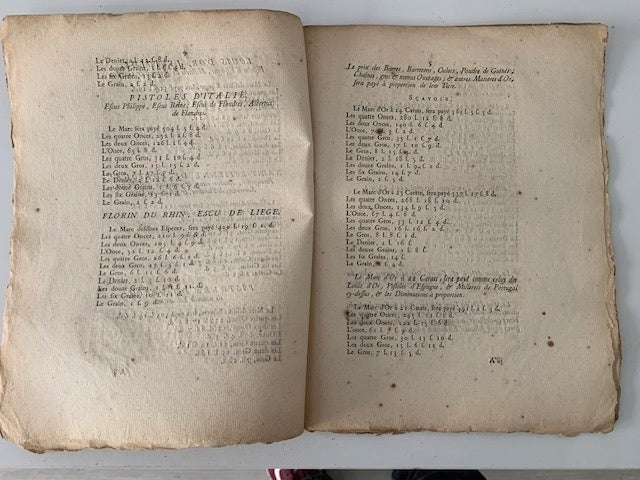 4
Le Denier,
Les douze Grains,
Les six Grains,
Le Grain, 2 f. 2 d.
PISTOLES D'ITALIE,
Escus Philippe, Escus Reine, Escus de Flandres, Albertus
de Flandres.
Le Marc sera payé 504 l. 5 f. 4 d.
Les quatre Onces, 252 l. 2 f. 8 d.
Les deux Onces, 126 l. 1 f. 4 d.
L'Once, 63 l.
Les quatre Gros, 31 l. 10 f. 4 d.
Les deux Gros, 15 l. 15 f. 2 d.
Le Gros, 7 l. 17 f. 7 d.
Le Denier, 2 l. 12 f. 6 d.
Les douze Grains, 1 l. 6 f.
Les six Grains, 13 f.
Le Grain, 2 f. 2 d.
FLORIN DU RHIN, ESCU DE LIEGE.
Le Marc desdites Especes, sera payé
Les quatre Onces,
Les deux Onces, 105 l. 4 f. 9 d.
L'Once, 52 l. 12 f. 4 d.
Les quatre Gros, 26 l. 6 f. 2 d.
Les deux Gros, 13 l. 3 f. 1 d.
Le Gros, 6 l. 11 f. 6 d.
Le Denier, 2 l. 3 f. 10 d.
Les douze Grains, 1 l. 1 f. 11 d.
Les six Grains, 10 f. 11 d.
Le Grain, 1 f. 9 d.
5
Le prix des Barres, Barretons, Culots, Poudre de Guinée,
Chaînes, gros & menus Ouvrages, & autres Matieres d'Or,
sera payé à proportion de leur Titre.
SÇAVOIR,
Le Marc d'Or à 24 Carats, sera payé 561 l. 5 f. 5 d.
Les quatre Onces, 280 l. 12 f. 8 d.
Les deux Onces, 140 l. 6 f. 4 d.
L'Once, 70 l. 3 f. 2 d.
Les quatre Gros, 35 l. 1 f. 7 d.
Les deux Gros, 17 l. 10 f. 9 d.
Le Gros, 8 l. 15 f. 4 d.
Le Denier, 2 l. 18 f. 5 d.
Les douze Grains, 1 l. 9 f. 2 d.
Les six Grains, 14 f. 7 d.
Le Grain, 2 f. 5 d.
Le Marc d'Or à 23 Carats, sera payé 537 l. 17 f. 8 d.
Les quatre Onces, 268 l. 18 f. 10 d.
Les deux Onces, 134 l. 9 f. 5 d.
L'Once, 67 l. 4 f. 8 d.
Les quatre Gros, 33 l. 12 f. 4 d.
Les deux Gros, 16 l. 16 f. 2 d.
Le Gros, 8 l. 8 f. 1 d.
Le Denier, 2 l. 16 f.
Les douze Grains, 1 l. 8 f.
Les six Grains, 14 f.
Le Grain, 2 f. 4 d.
Le Marc d'Or à 22 Carats, sera payé comme celui des
Louis d'Or, Pistoles d'Espagne, & Millerets de Portugal
cy-dessus, & les Diminutions à proportion.
Le Marc d'Or à 21 Carats, sera payé 491 l. 2 f. 3 d.
Les quatre Onces, 245 l. 11 f. 1 d.
Les deux Onces, 122 l. 15 f. 6 d.
L'Once, 61 l. 7 f. 9 d.
Les quatre Gros, 30 l. 13 f. 10 d.
Les deux Gros, 15 l. 6 f. 11 d.
Le Gros, 7 l. 13 f. 5 d.
A iij